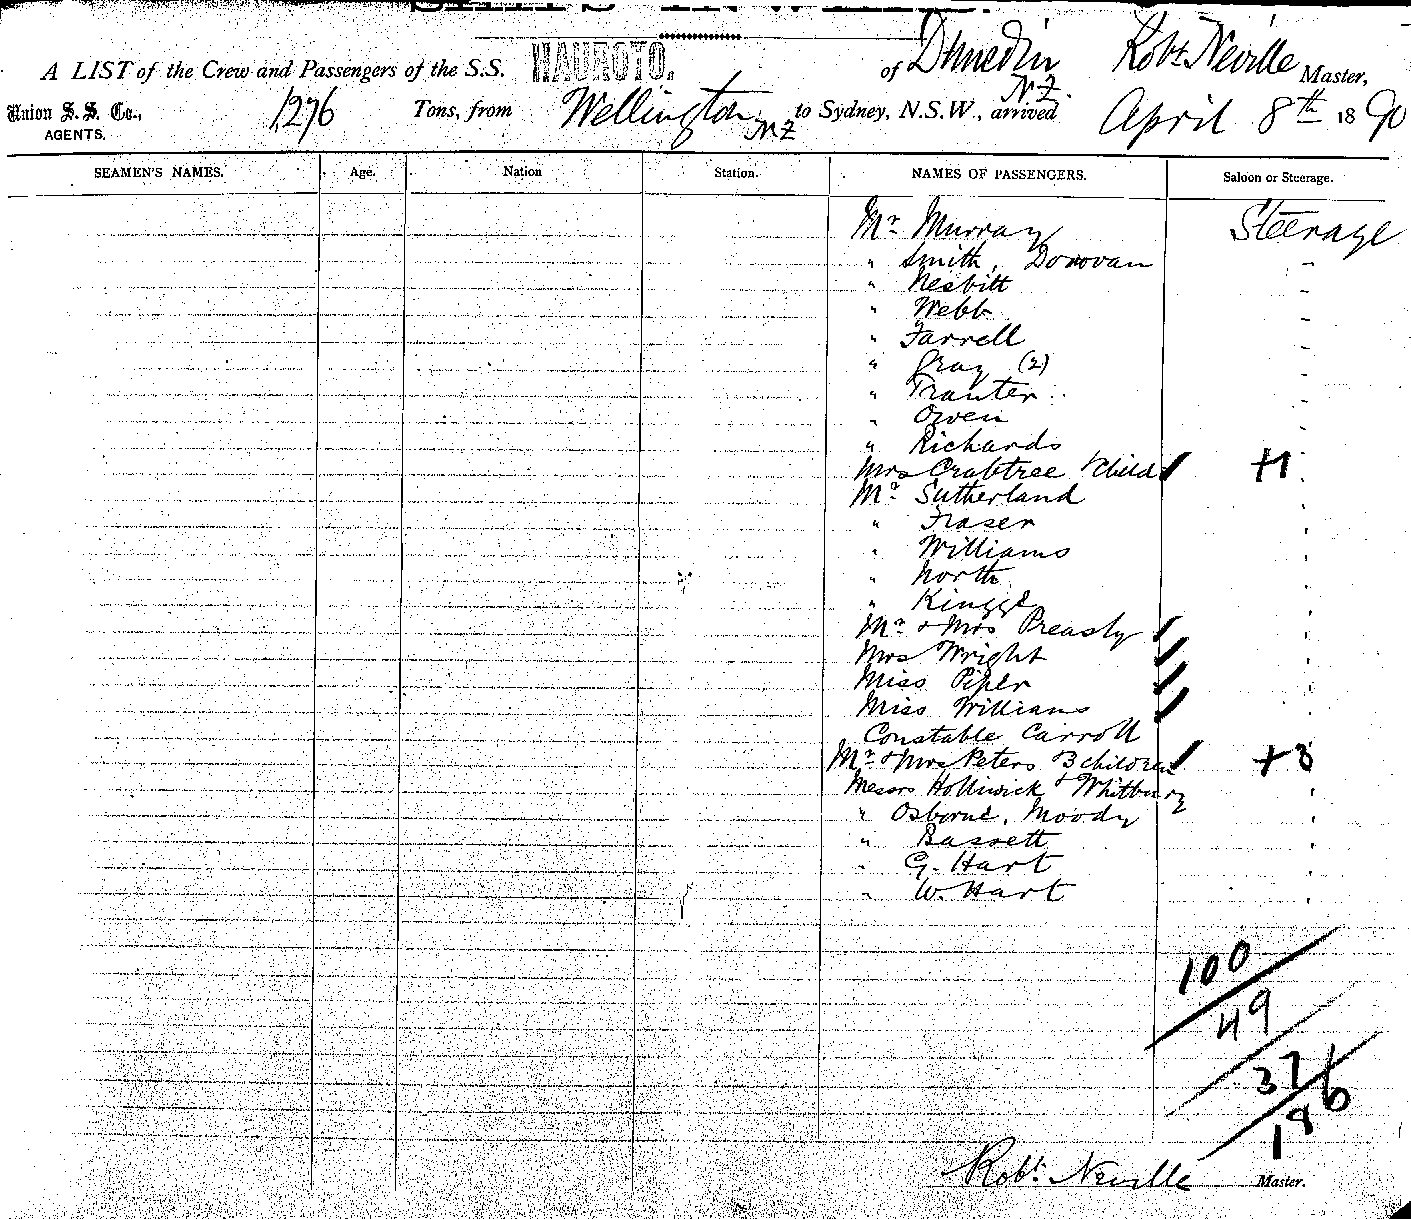 SHIP'S INWARD.
A LIST of the Crew and Passengers of the S.S. HAUROTO. of Dunedin N.Z. Robt. Neville Master,
Union S. S. Co., AGENTS. 1,276 Tons, from Wellington N.Z to Sydney, N.S.W., arrived April 8th 1890
SEAMEN'S NAMES. Age. Nation Station. NAMES OF PASSENGERS. Saloon or Steerage.
Mr Murray Steerage
" Smith, Donovan "
" Nesbitt "
" Webb "
" Farrell "
" Gray (2) "
" Tranter "
" Owen "
" Richards "
Mrs Crabtree & child +1 "
Mr Sutherland "
" Fraser "
" Williams "
" North "
"
Mr & Mrs Preasly "
Mrs Wright "
Miss Piper "
Miss Williams "
Constable Carroll "
Mr & Mrs Peters 3 children +3 "
Messrs Holliwick & Whitbury "
" Osborne, Moody "
" Bassett "
" G. Hart "
" W. Hart "
100
49
37 6
186
Robt. Neville Master.